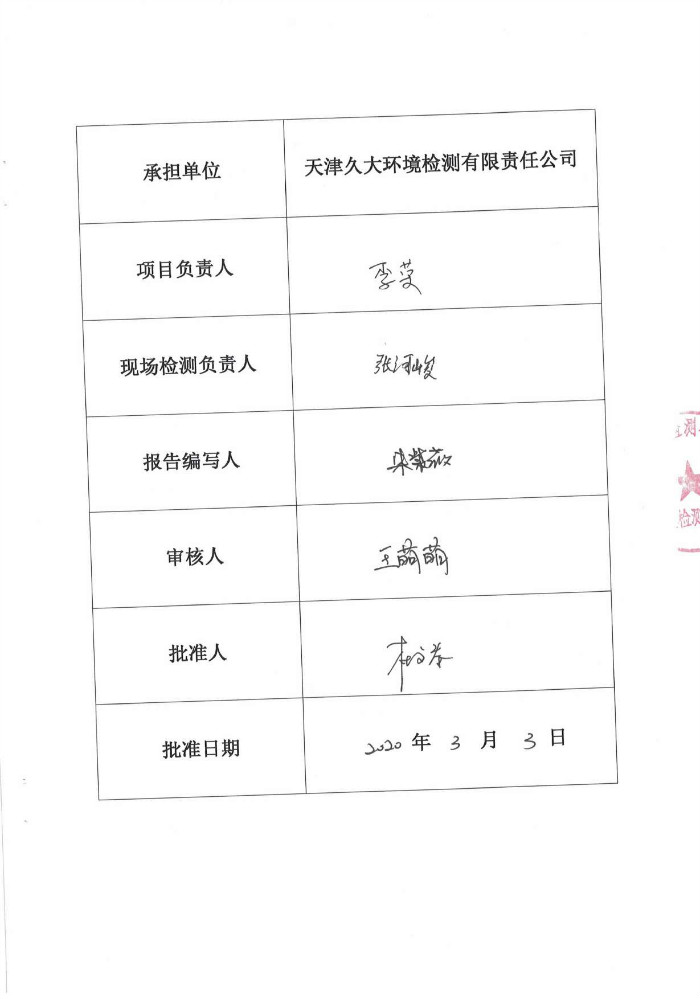 承担单位
天津久大环境检测有限责任公司
项目负责人
现场检测负责人
报告编写人
审核人
王萌萌
批准人
批准日期
2020 年 3 月 3 日
检测